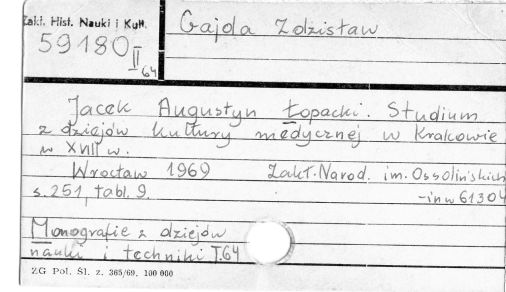 Zakł. Hist. Nauki i Kult.
59180 II
64
Gajda Zdzisław
Jacek Augustyn Łopacki. Studium
z dziejów kultury medycznej w Krakowie
w XVIII w.
Wrocław 1969 Zakł. Narod. im. Ossolińskich
s. 251, tabl. 9.
- inw 61304
Monografie z dziejów
nauki i techniki T.64
ZG Pol. Śl. z. 365/69. 100 000